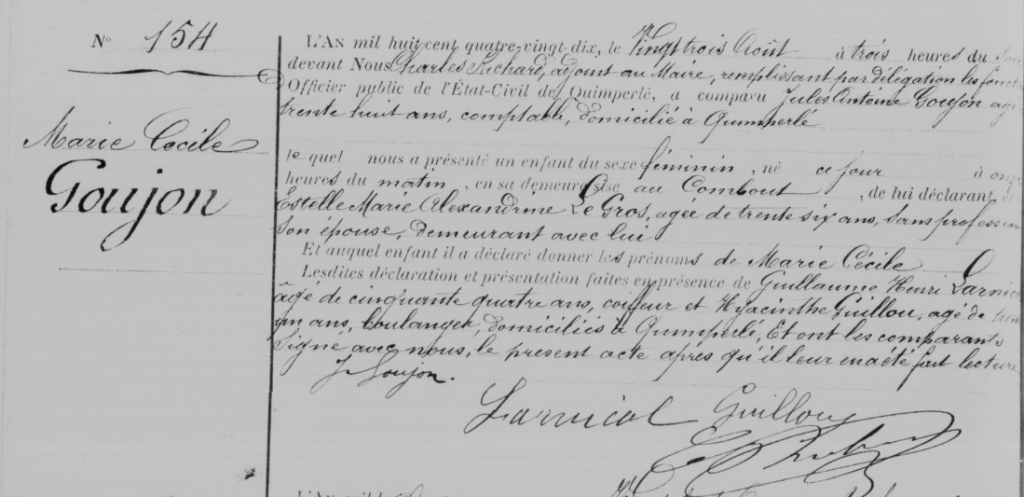 No 154
Marie Cécile
Goujon
L'AN mil huit cent quatre-vingt-dix, le Vingt trois Août à trois heures du Soir
devant Nous Charles Richard, adjoint au Maire, remplissant par délégation les fonct
Officier public de l'État-Civil de Quimperlé, a comparu Jules Antoine Goujon agé
trente huit ans, comptable, domicilié à Quimperlé
le quel nous a présenté un enfant du sexe féminin, né ce jour à onze
heures du matin, en sa demeure sise au Combout, de lui déclarant, et
Estelle Marie Alexandrine Le Gros, agée de trente six ans, sans profession
son épouse, demeurant avec lui
Et auquel enfant il a déclaré donner les prénoms de Marie Cécile
Lesdites déclaration et présentation faites en présence de Guillaume Henri Larnicol
âgé de cinquante quatre ans, coiffeur et Hyacinthe Guillou, agé de
un ans, boulanger, domiciliés à Quimperlé, Et ont les comparants
signé avec nous, le présent acte après qu'il leur en a été fait lecture
J. Goujon.
Larnicol Guillou
L'AN mil